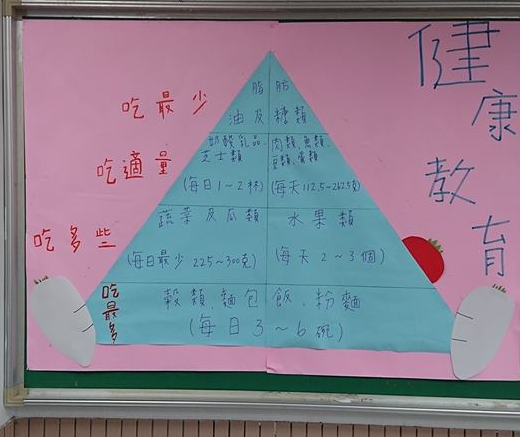 健康教育
吃最少
脂肪
油及糖類
吃適量
奶酸乳品、
芝士類
(每日1~2杯)
肉類、魚類、
豆類、蛋類
(每天112.5~262.5克)
吃多些
蔬菜及瓜類
(每日最少225~300克)
水果類
(每天2~3個)
吃最多
穀類、麵包、飯、粉麵
(每日3~6碗)